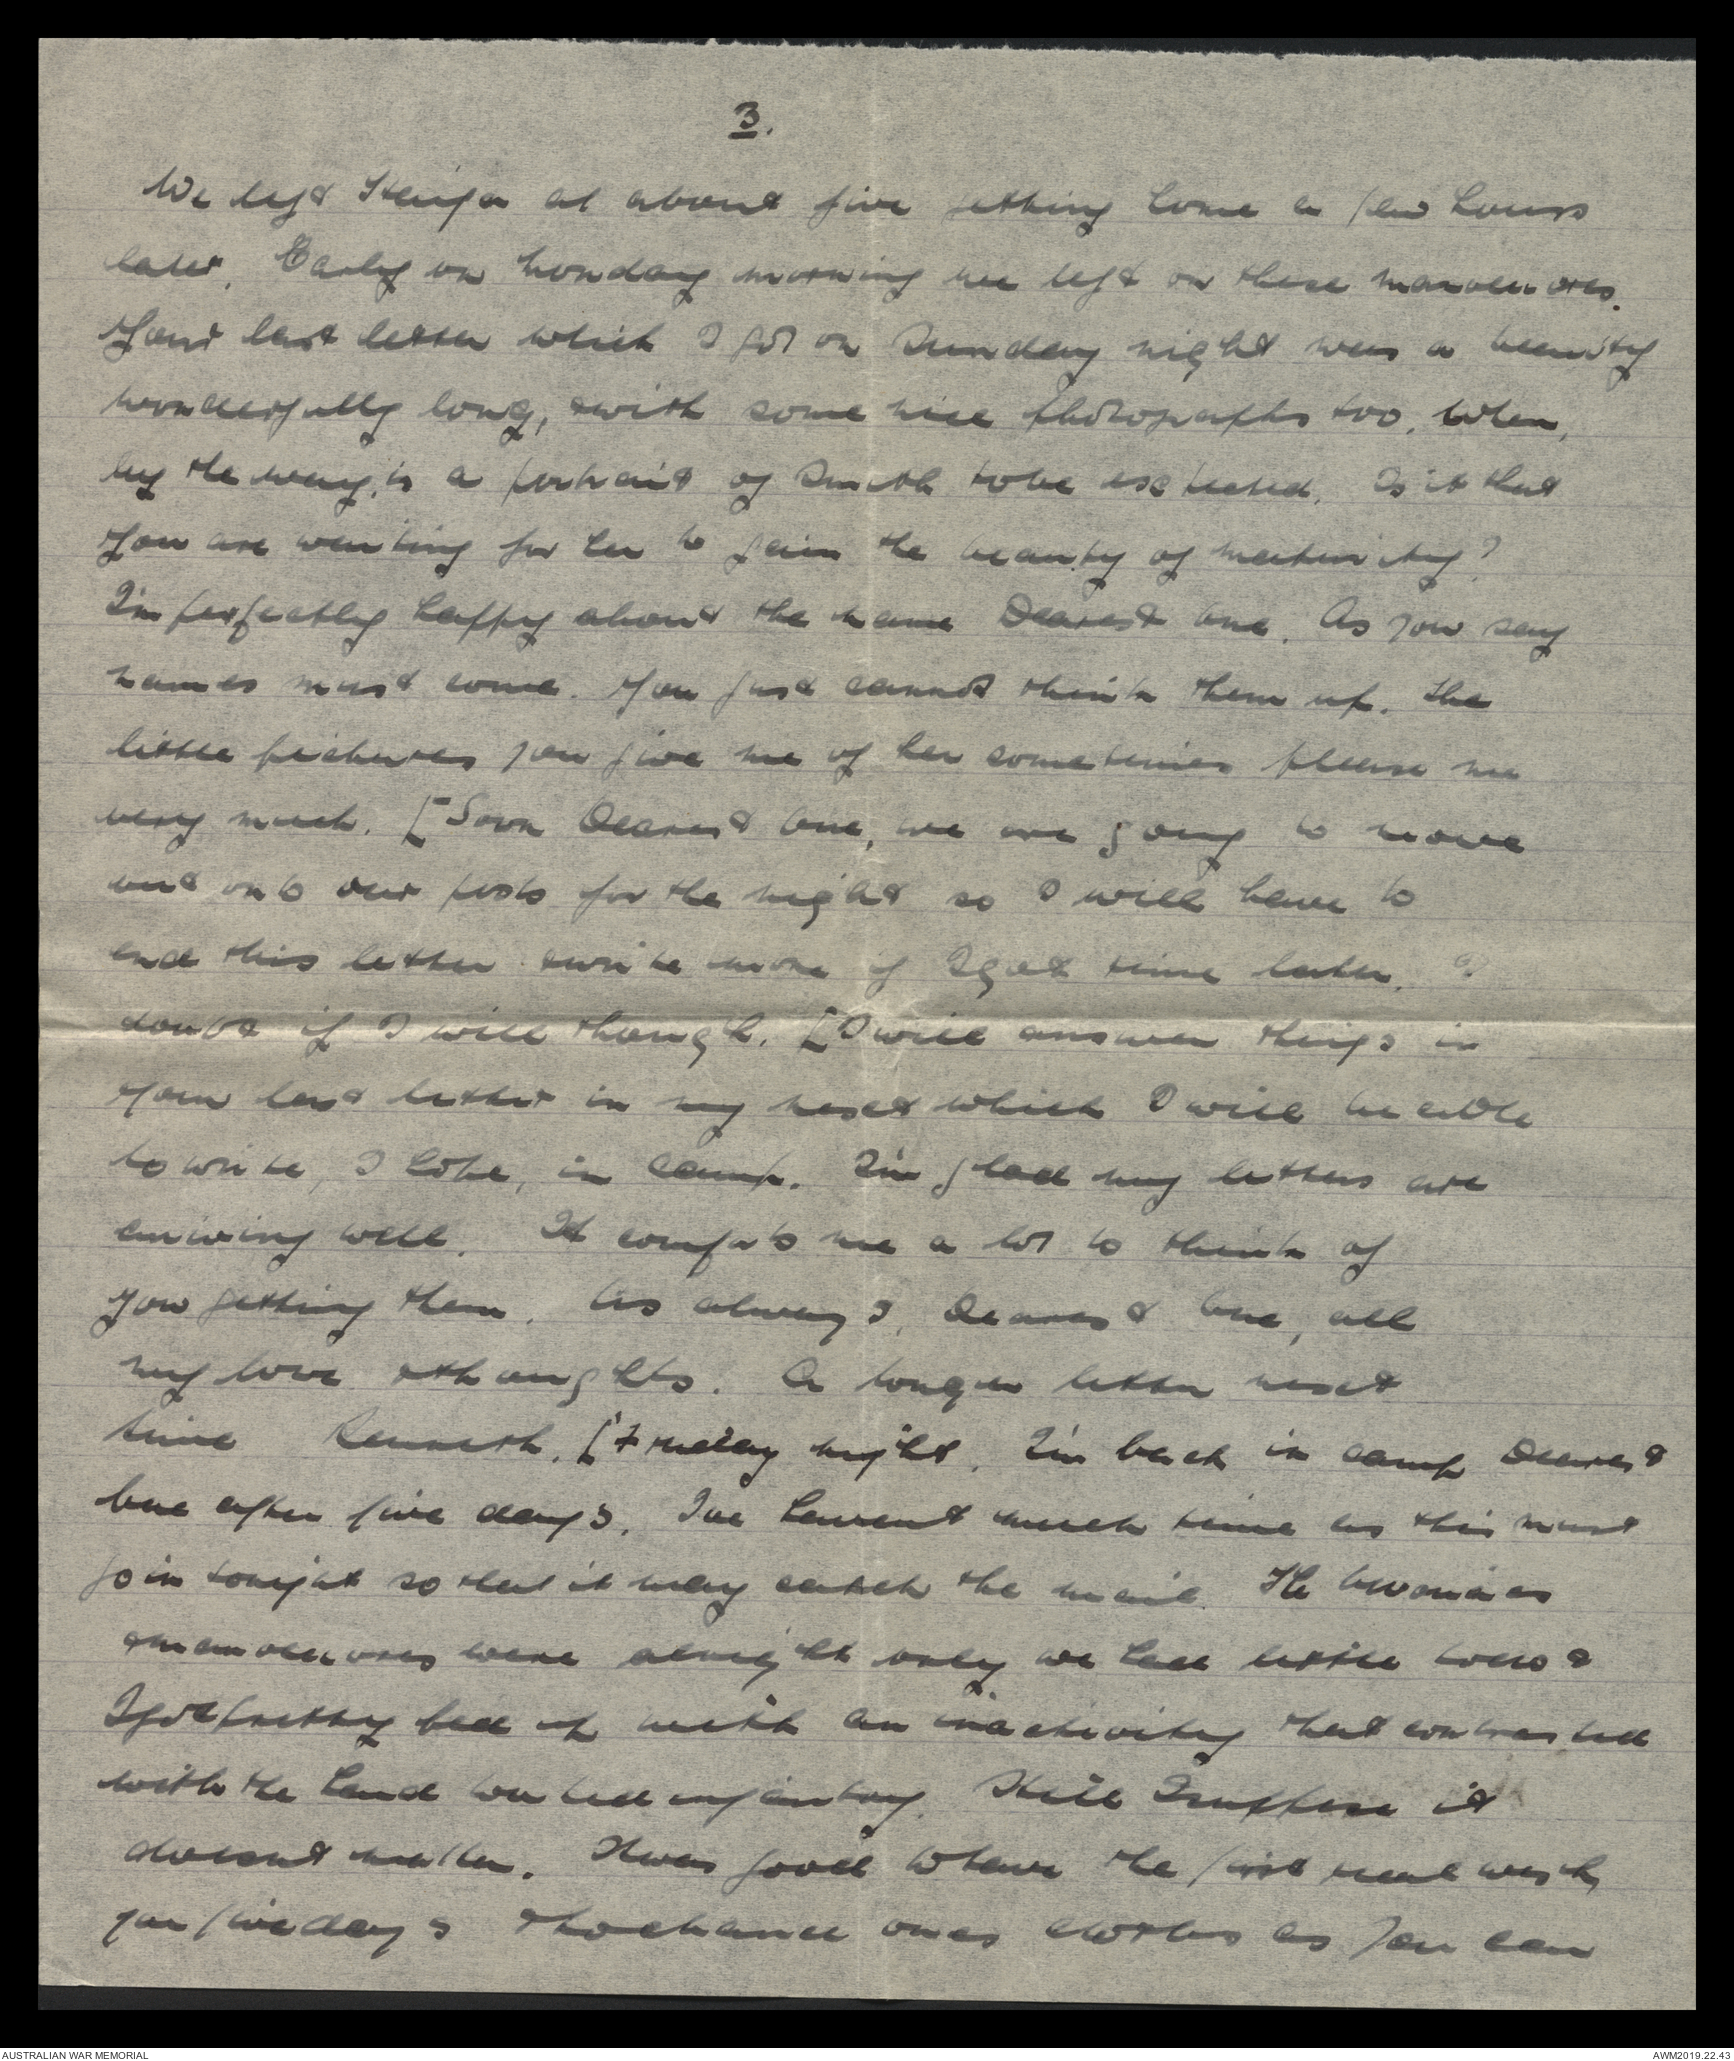 3.
We left Haifa at about five getting home a few hours
later. Early on Monday morning we left on these manoeuvres.
Your last letter which I got on Sunday night was a beauty
wonderfully long, & with some nice photographs too. When,
by the way, is a portrait of Smith to be expected. Is it that
you are waiting for her to gain the beauty of maturity?
I'm perfectly happy about the name Dearest One. As you say
names must come. You just cannot think them up. The
little pictures you give me of her sometimes please me
very much. [Soon Dearest One, we are going to move
out onto our posts for the night so I will have to
end this letter & write more if I get time later. I
doubt if I will though. [I will answer things in
your last letter in my next which I will be able
to write, I hope, in camp. I'm glad my letters are
arriving well. It comforts me a lot to think of
you getting them. As always, Dearest One, all
my love & thoughts. A longer letter next
time Kenneth. [Friday night. I'm back in camp Dearest
One after five days. I've havent much time as this must
go in tonight so that it may catch the mail. The
& manoeuvres were alright only we had little to do &
I got pretty fed up with an inactivity that contrasted
with the hard worked infantry. Still I suppose it
doesnt matter. It was good to have the first real wash
for five days & to change ones clothes as you can